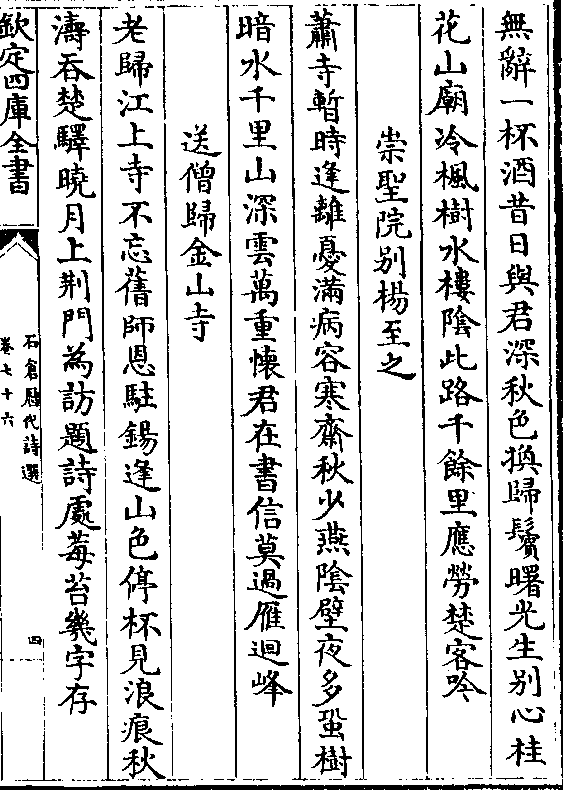 無辭一杯酒昔日與君深秋色換歸鬢曙光生别心桂
花山廟冷楓樹水樓陰此路千餘里應勞楚客吟
崇聖院别楊至之
蕭寺暫時逢離憂滿病容寒齋秋少燕陰壁夜多蛩樹
暗水千里山深雲萬重懷君在書信莫過雁迴峰
送僧歸金山寺
老歸江上寺不忘舊師恩駐錫逢山色停杯見浪痕秋
濤吞楚驛曉月上荆門為訪題詩處莓苔幾字存
欽定四庫全書
石倉歷代詩選
卷七十六
四